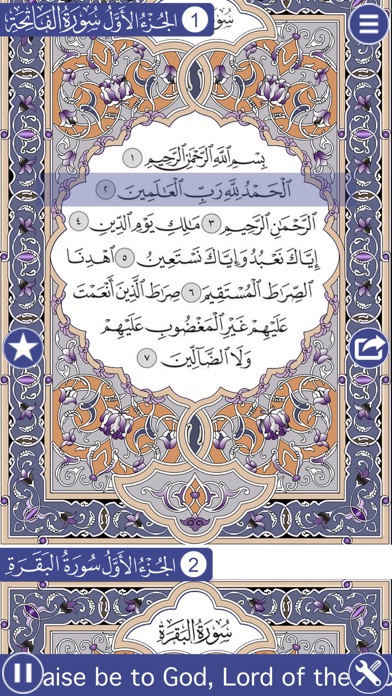 الجزء الأول سورة الفاتحة 1
بِسْمِ ٱللَّهِ ٱلرَّحْمَٰنِ ٱلرَّحِيمِ ١
ٱلْحَمْدُ لِلَّهِ رَبِّ ٱلْعَٰلَمِينَ ٢
ٱلرَّحْمَٰنِ ٱلرَّحِيمِ ٣ مَٰلِكِ يَوْمِ ٱلدِّينِ ٤
إِيَّاكَ نَعْبُدُ وَإِيَّاكَ نَسْتَعِينُ ٥ ٱهْدِنَا
ٱلصِّرَٰطَ ٱلْمُسْتَقِيمَ ٦ صِرَٰطَ ٱلَّذِينَ أَنْعَمْتَ
عَلَيْهِمْ غَيْرِ ٱلْمَغْضُوبِ عَلَيْهِمْ
وَلَا ٱلضَّآلِّينَ ٧
الجُزْءُ الأَوَّلُ سُورَةُ البَقَرَة 2
سُورَةُ البَقَرَةِ
aise be to God, Lord of the